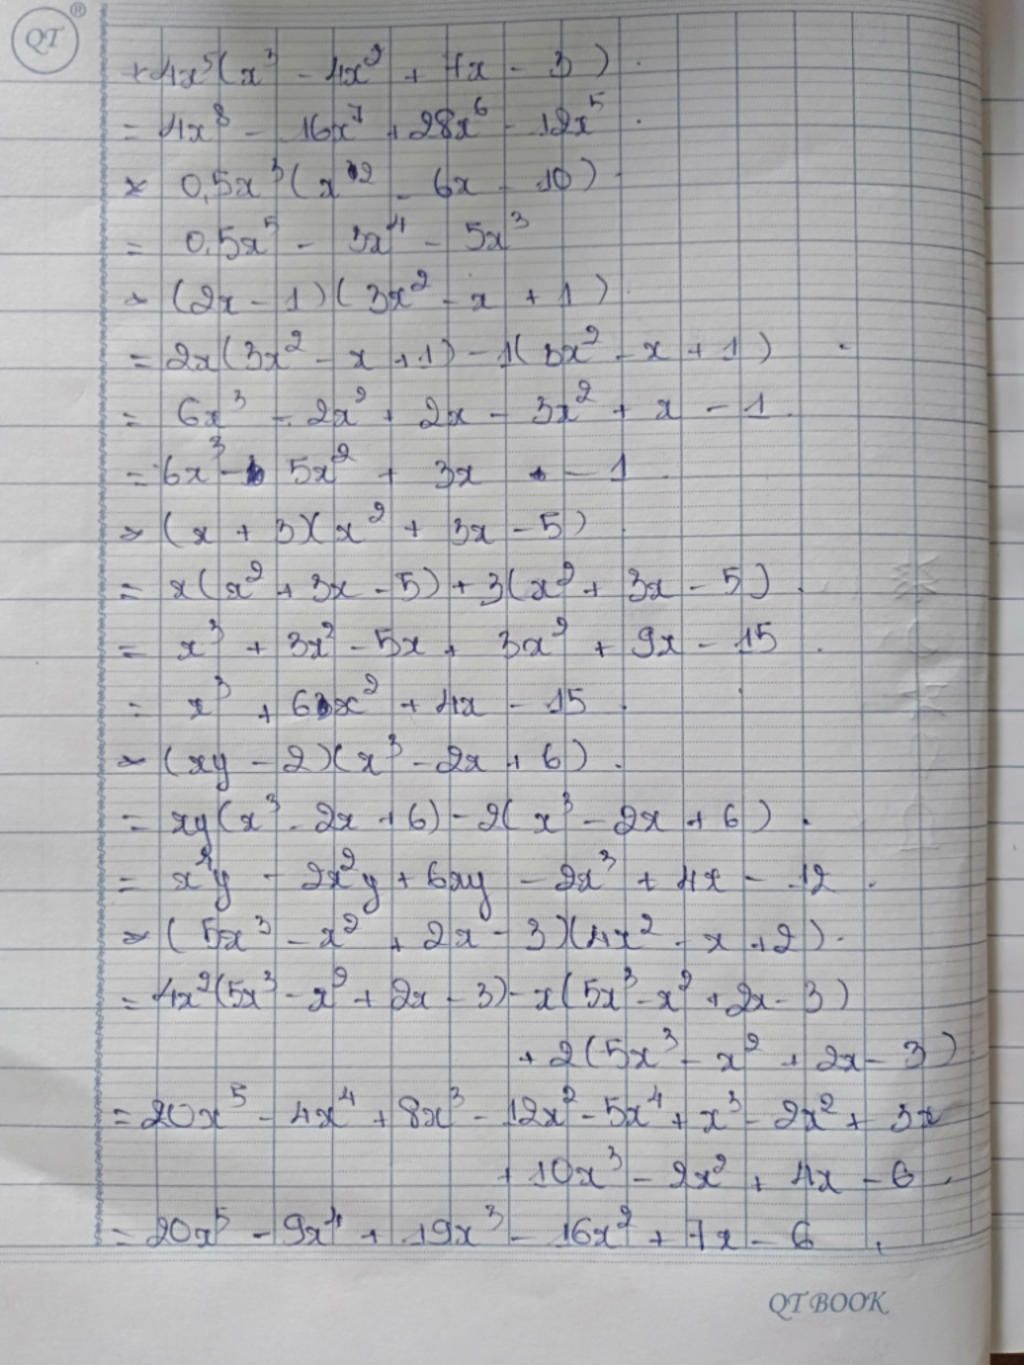 QT ®
+ 4x⁵(x³ - 4x² + 7x - 3).
= 4x⁸ - 16x⁷ + 28x⁶ - 12x⁵.
* 0,5x³(x² - 6x - 10)
= 0,5x⁵ - 3x⁴ - 5x³
* (2x - 1)(3x² - x + 1)
= 2x(3x² - x + 1) - 1(3x² - x + 1)
= 6x³ - 2x² + 2x - 3x² + x - 1.
= 6x³ - 5x² + 3x - 1
* (x + 3)(x² + 3x - 5)
= x(x² + 3x - 5) + 3(x² + 3x - 5).
= x³ + 3x² - 5x + 3x² + 9x - 15.
= x³ + 6x² + 4x - 15.
* (xy - 2)(x³ - 2x + 6).
= xy(x³ - 2x + 6) - 2(x³ - 2x + 6).
= x⁴y - 2x²y + 6xy - 2x³ + 4x - 12.
* (5x³ - x² + 2x - 3)(4x² - x + 2).
= 4x²(5x³ - x² + 2x - 3) - x(5x³ - x² + 2x - 3)
+ 2(5x³ - x² + 2x - 3)
= 20x⁵ - 4x⁴ + 8x³ - 12x² - 5x⁴ + x³ - 2x² + 3x
+ 10x³ - 2x² + 4x - 6.
= 20x⁵ - 9x⁴ + 19x³ - 16x² + 7x - 6.
QT BOOK